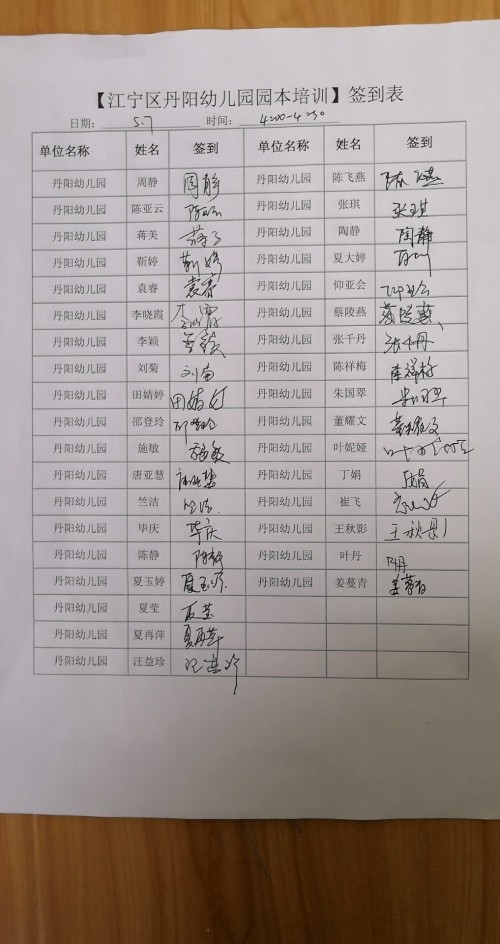 【江宁区丹阳幼儿园园本培训】签到表
日期: 5.7 时间: 4:00-4:30
单位名称 姓名 签到 单位名称 姓名 签到
丹阳幼儿园 周静 周静 丹阳幼儿园 陈飞燕 陈飞燕
丹阳幼儿园 陈亚云 丹阳幼儿园 张琪 张琪
丹阳幼儿园 蒋美 丹阳幼儿园 陶静 陶静
丹阳幼儿园 靳婷 靳婷 丹阳幼儿园 夏大婷
丹阳幼儿园 袁睿 袁睿 丹阳幼儿园 仰亚会 仰亚会
丹阳幼儿园 李晓霞 丹阳幼儿园 蔡陵燕
丹阳幼儿园 李颖 丹阳幼儿园 张千丹 张千丹
丹阳幼儿园 刘菊 刘菊 丹阳幼儿园 陈祥梅 陈祥梅
丹阳幼儿园 田婧婷 田婧婷 丹阳幼儿园 朱国翠
丹阳幼儿园 邵登玲 丹阳幼儿园 董耀文 董耀文
丹阳幼儿园 施敏 施敏 丹阳幼儿园 叶妮娅
丹阳幼儿园 唐亚慧 丹阳幼儿园 丁娟
丹阳幼儿园 竺洁 竺洁 丹阳幼儿园 崔飞
丹阳幼儿园 毕庆 毕庆 丹阳幼儿园 王秋影 王秋影
丹阳幼儿园 陈静 陈静 丹阳幼儿园 叶丹
丹阳幼儿园 夏玉婷 夏玉婷 丹阳幼儿园 姜蔓青 姜蔓青
丹阳幼儿园 夏莹 夏莹
丹阳幼儿园 夏再萍 夏再萍
丹阳幼儿园 汪益珍 汪益珍